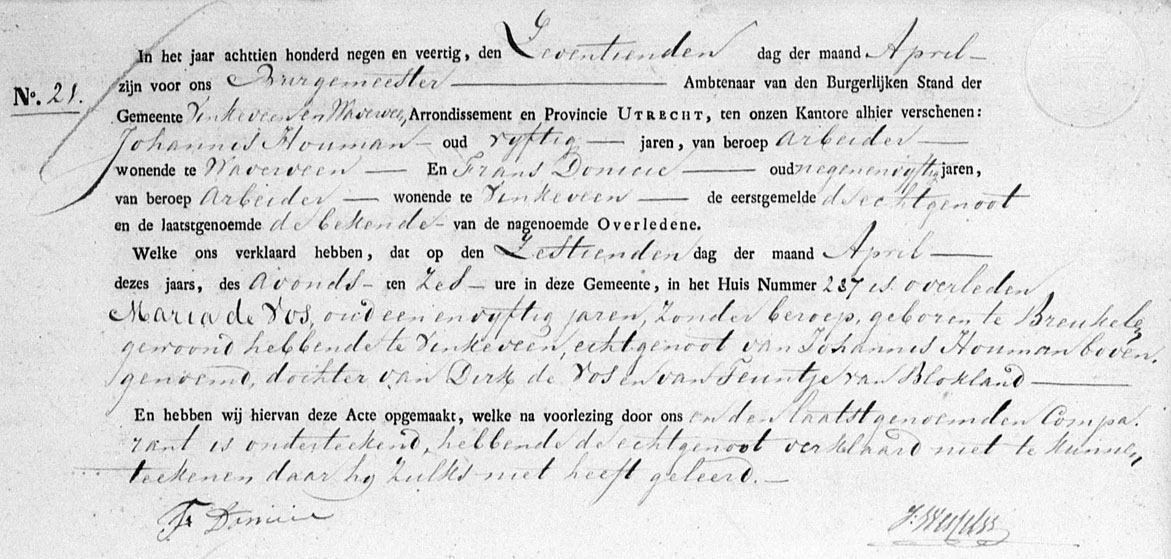 In het jaar achttien honderd negen en veertig, den Zeventienden dag der maand April
zijn voor ons Burgemeester Ambtenaar van den Burgerlijken Stand der
No. 21.
Gemeente Vinkeveen en Waverveen, Arrondissement en Provincie UTRECHT, ten onzen Kantore alhier verschenen:
Johannis Houman oud vyftig jaren, van beroep Arbeider
wonende te Waverveen En Frans Domicie oud negenenvyftig jaren,
van beroep Arbeider wonende te Vinkeveen de eerstgemelde de echtgenoot
en de laatstgenoemde de bekende van de nagenoemde Overledene.
Welke ons verklaard hebben, dat op den Zestienden dag der maand April
dezes jaars, des Avonds ten Zes ure in deze Gemeente, in het Huis Nummer 237 is overleden
Maria de Vos, oud een en vyftig jaren, Zonder beroep, geboren te Breukele
gewoond hebbende te Vinkeveen, echtgenoot van Johannis Houman boven
genoemd, dochter van Dirk de Vos en van Teuntje van Blokland
En hebben wij hiervan deze Acte opgemaakt, welke na voorlezing door ons en den laatstgenoemden Compa.
rant is onderteekend, hebbende de echtgenoot verklaard niet te kunnen
teekenen daar hy Zulks niet heeft geleerd.
Fr Domicie